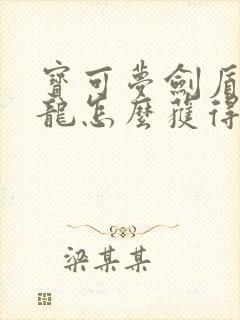 寶可夢劍盾
龍怎麼獲得
梁某某